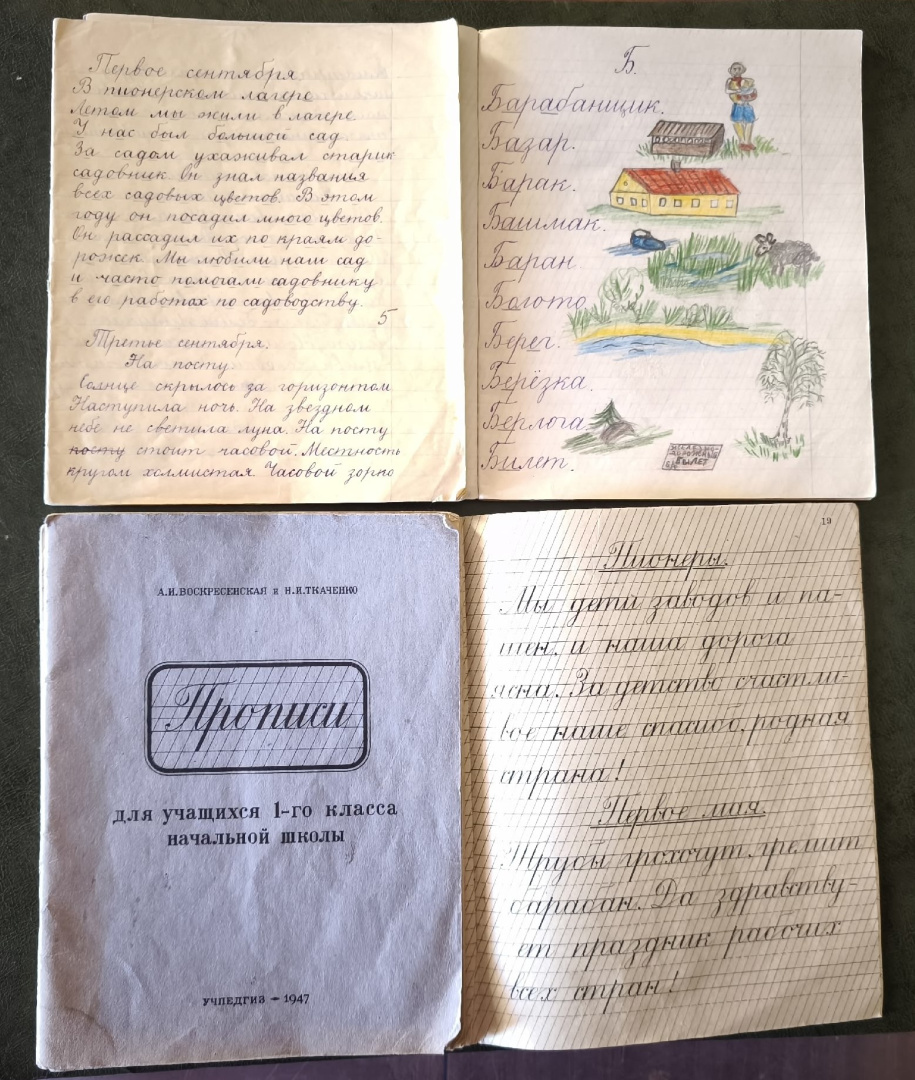 Первое сентября
В пионерском лагере
Летом мы жили в лагере.
У нас был большой сад
За садом ухаживал старик
садовник Он знал названия
всех садовых цветов. В этом
году он посадил много цветов.
Он рассадил их по краям до-
рожек. Мы любили наш сад
и часто помогали садовнику
в его работах по садоводству.
5
Третье сентября.
На посту.
Солнце скрылось за горизонтом
Наступила ночь. На звездном
небе не светила луна. На посту
посту стоит часовой. Местность
кругом холмистая. Часовой зорко
Б.
Барабанщик.
Базар.
Барак.
Башмак.
Баран
Болото
Берег.
Берёзка.
Берлога.
Билет.
ЖЕЛЕЗНО-
ДОРОЖНЫЙ
БИЛЕТ
А.И.ВОСКРЕСЕНСКАЯ и Н.И.ТКАЧЕНКО
Прописи
для учащихся 1-го класса
начальной школы
УЧПЕДГИЗ — 1947
19
Пионеры.
Мы дети заводов и па-
шен, и наша дорога
ясна. За детство счастли-
вое наше спасибо, родная
страна!
Первое мая.
Трубы грохочут, гремит
барабан. Да здравству-
ет праздник рабочих
всех стран!